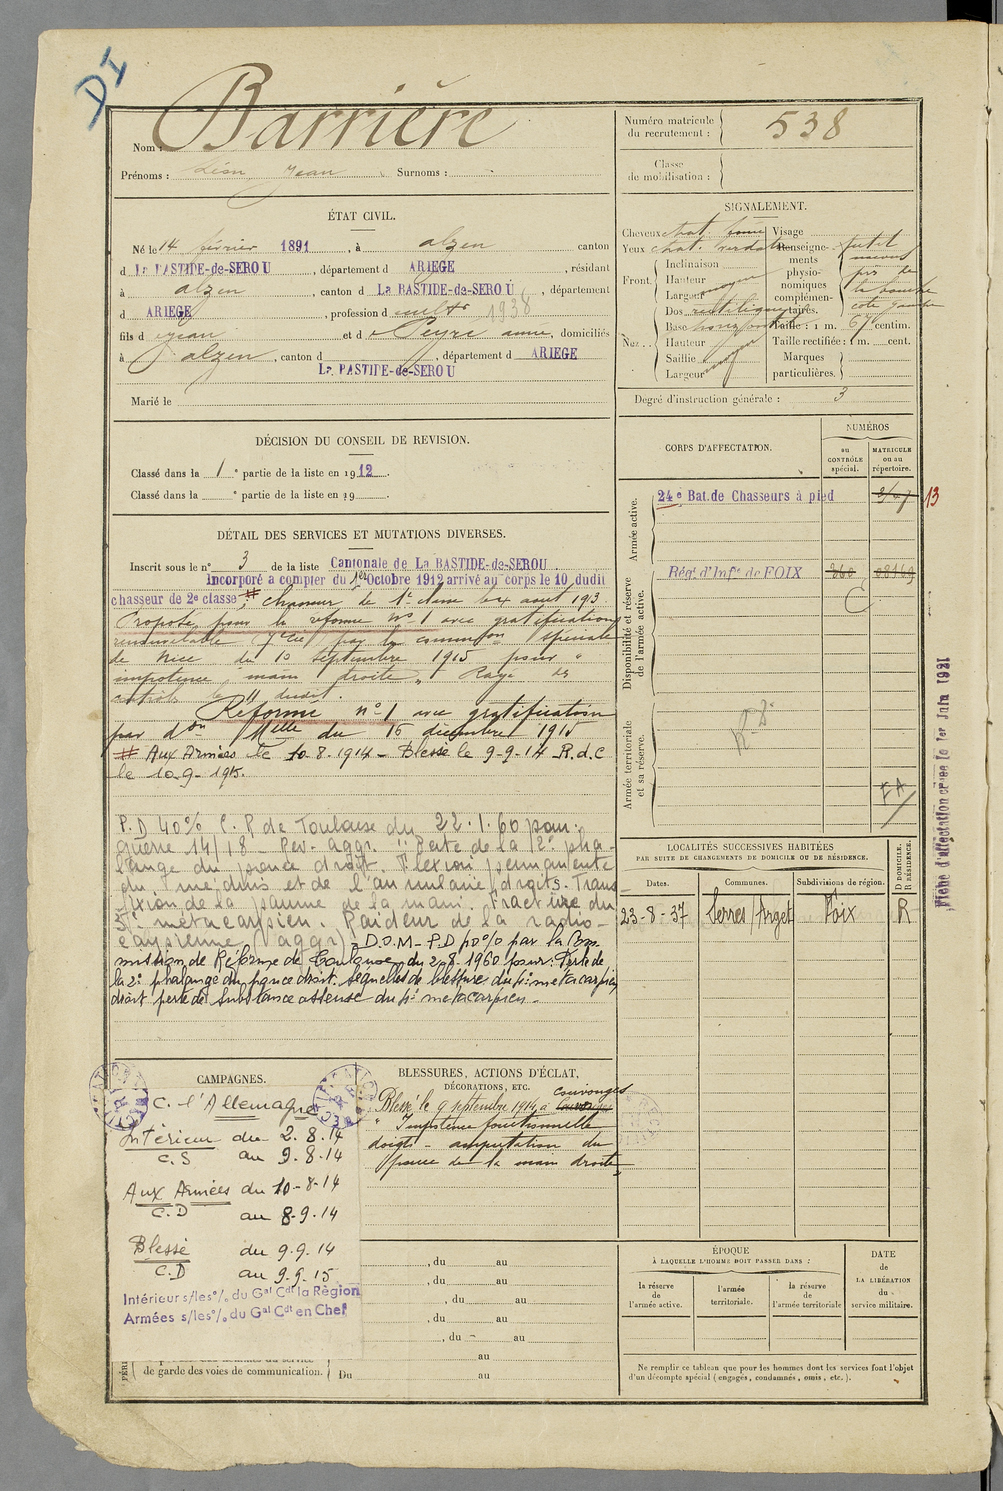 DI
Nom : Barrière
Prénoms : Léon Jean Surnoms :
Numéro matricule
du recrutement : 538
Classe
de mobilisation :
ÉTAT CIVIL.
Né le 14 février 1891, à alzen canton
d La BASTIDE-de-SEROU, département d ARIEGE, résidant
à alzen, canton d La BASTIDE-de-SEROU, département
d ARIEGE, profession d cultr 1938
fils d Jean et d Peyre anne, domiciliés
à alzen, canton d , département d ARIEGE
La BASTIDE-de-SEROU
Marié le
SIGNALEMENT.
Cheveux chat.
Yeux chat. verdatre
Front.
Inclinaison
Hauteur
Largeur moyen
Nez..
Dos rectiligne
Base horizontal
Hauteur
Saillie
Largeur moyen
Visage
Renseigne-
ments
physio-
nomiques
complémen-
taires.
petit
naevus
près de
la bouche
côté gauche
Taille : 1 m. 67 centim.
Taille rectifiée : 1 m. cent.
Marques
particulières.
Degré d'instruction générale : 3
DÉCISION DU CONSEIL DE REVISION.
Classé dans la 1e partie de la liste en 1912.
Classé dans la e partie de la liste en 19 .
DÉTAIL DES SERVICES ET MUTATIONS DIVERSES.
Inscrit sous le n° 3 de la liste Cantonale de La BASTIDE-de-SEROU
Incorporé a compter du 1er Octobre 1912 arrivé au corps le 10 dudit
chasseur de 2e classe, chasseur de 1e classe le 4 aout 1913
Proposé pour la réforme n° 1 avec gratification
renouvelable par la commission spéciale
de Nice du 10 septembre 1915 pour "
impotence main droite " Rayé des
contrôles le 11 dudit.
Réformé n° 1 avec gratification
par don Mlle du 16 décembre 1915
# Aux Armées le 10-8-1914 - Blessé le 9-9-14 R.d.C
le 10-9-1915.
P.D 40% C.R de Toulouse du 22.1.60 pour:
guerre 14/18 - Rev. aggr. " Perte de la 2e pha-
lange du pouce droit. Flexion permanente
du médius et de l'annulaire droits. Trans
fixion de la paume de la main. Fracture du
métacarpien. Raideur de la radio-
carpienne (aggr) - D.O.M - P.D 40% par la Com
mission de Réforme de Toulouse du 2-8-1960 pour: Perte de
la 2e phalange du pouce droit. séquelles de blessure du 4e métacarpien
droit perte de substance osseuse du 4e métacarpien.
CORPS D'AFFECTATION.
NUMÉROS
au
CONTRÔLE
spécial.
MATRICULE
ou au
répertoire.
Armée active.
24e Bat. de Chasseurs à pied
13
Disponibilité et réserve
de l'armée active.
Régt d'Infie de FOIX 260 08169
Armée territoriale
et sa réserve.
FA
Fiche d'affectation créée le 1er Juin 1921
LOCALITÉS SUCCESSIVES HABITÉES
PAR SUITE DE CHANGEMENTS DE DOMICILE OU DE RÉSIDENCE.
Dates. Communes. Subdivisions de région. D DOMICILE. R RÉSIDENCE.
23-8-37 Serres/Arget Foix R
CAMPAGNES.
C. l'Allemagne
Intérieur du 2.8.14
C.S au 9.8.14
Aux Armées du 10-8-14
C.D au 8-9.14
Blessé du 9.9.14
C.D au 9.9.15
Intérieur s/les °/. du Gal Cdt la Région
Armées s/les °/. du Gal Cdt en Chef
de garde des voies de communication.
BLESSURES, ACTIONS D'ÉCLAT,
DÉCORATIONS, ETC.
couvonges
Blessé le 9 septembre 1914 à
" Impotence fonctionnelle
doigts - amputation du
pouce de la main droite "
, du au
, du au
, du au
, du au
, du au
au
Du au
ÉPOQUE
À LAQUELLE L'HOMME DOIT PASSER DANS :
la réserve
de
l'armée active.
l'armée
territoriale.
la réserve
de
l'armée territoriale
DATE
de
LA LIBÉRATION
du
service militaire.
Ne remplir ce tableau que pour les hommes dont les services font l'objet
d'un décompte spécial (engagés, condamnés, omis, etc.).